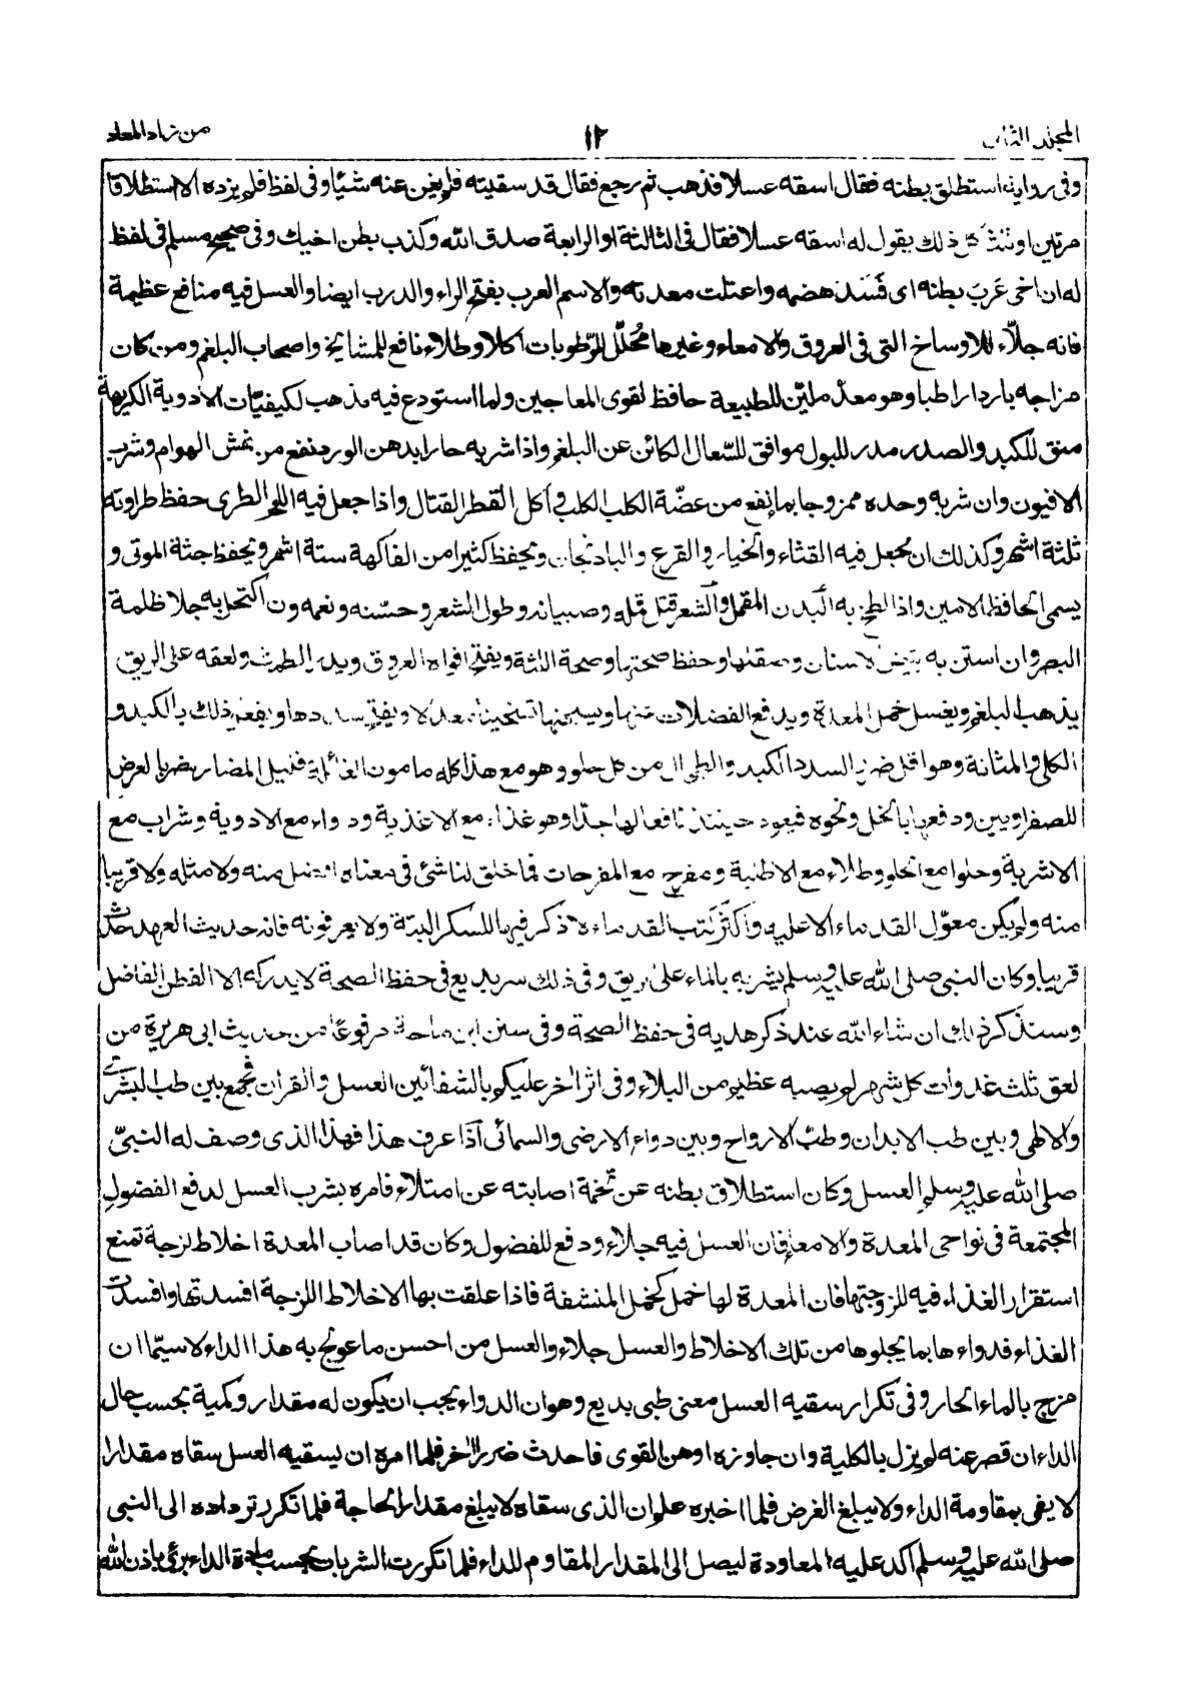 المجلد الثانى
١٢
من زاد المعاد
وفى رواية استطلق بطنه فقال اسقه عسلا فذهب ثم رجع فقال قد سقيته فلم يغن عنه شيئا وفى لفظ فلم يزده الا استطلاقا
مرتين او ثلثا كل ذلك يقول له اسقه عسلا فقال فى الثالثة او الرابعة صدق الله وكذب بطن اخيك وفى صحيح مسلم فى لفظ
له ان اخى عَرَبَ بطنه اى فَسَدَ هضمه واعتلت معدته والاسم العرب بفتح الراء والدرب ايضا والعسل فيه منافع عظيمة
فانه جلّاء للاوساخ التى فى العروق والامعاء وغيرها مُحَلّل للرّطوبات اكلا وطلاء نافع للمشايخ واصحاب البلغم ومن كان
مزاجه باردا رطبا وهو مغذّ مليّن للطبيعة حافظ لقوى المعاجين ولما استودع فيه مذهب لكيفيّات الادوية الكريهة
منق للكبد والصدر مدر للبول موافق للسّعال الكائن عن البلغم واذا شربه حارا بدهن الورد نفع من نهش الهوام وشرب
الافيون وان شربه وحده ممزوجا بماء نفع من عضّة الكلب الكلب واكل الفطر القتال واذا جعل فيه اللحم الطرى حفظ طراوته
ثلثة اشهر وكذلك ان جعل فيه القثاء والخيار والقرع والباذنجان ويحفظ كثيرا من الفاكهة ستة اشهر ويحفظ جثة الموتى و
يسمى الحافظ الامين واذا الطخ به البدن المقمل والشعر قتل قمله وصبيانه وطول الشعر وحسّنه ونعمه ون اكتحل به جلا ظلمة
البصر وان استن به بيّض الاسنان وصقلها وحفظ صحتها وصحة اللثة ويفتح افواه العروق ويدر الطمث ولعقه على الريق
يذهب البلغم ويغسل خمل المعدة ويدفع الفضلات منها ويسخنها تسخينا معتدلا ويفتح سددها ويفعل ذلك بالكبد و
الكلى والمثانة وهو اقل ضررا لسدد الكبد والطحال من كل حلو وهو مع هذا كله مامون الغائلة قليل المضار مضر بالعرض
للصفراويين ودفعها بالخل ونحوه فيعود حينئذ نافعا لها جدّا وهو غذاء مع الاغذية ودواء مع الادوية وشراب مع
الاشربة وحلوا مع الحلو وطلاء مع الاطلية ومفرح مع المفرحات فما خلق لنا شئ فى معناه افضل منه ولا مثله ولا قريبا
منه ولم يكن معوّل القدماء الا عليه واكثر كتب القدماء لا ذكر فيها للسكر البتة ولا يعرفونه فانه حديث العهد حدث
قريبا وكان النبى صلى الله عليه وسلم يشربه بالماء على الريق وفى ذلك سر بديع فى حفظ الصحة لا يدركه الا الفطن الفاضل
وسنذكر ذلك ان شاء الله عند ذكر هديه فى حفظ الصحة وفى سنن ابن ماجة مرفوعًا من حديث ابى هريرة من
لعق ثلث غدوات كل شهر لم يصبه عظيم من البلاء وفى اثر اخر عليكم بالشفائين العسل والقران فجمع بين طب البشرى
والالهى وبين طب الابدان وطبّ الارواح وبين دواء الارضى والسمائى اذا عرف هذا فهذا الذى وصف له النبىّ
صلى الله عليه وسلم العسل وكان استطلاق بطنه عن تخمة اصابته عن امتلاء فامره بشرب العسل لدفع الفضول
المجتمعة فى نواحى المعدة والامعاء فان العسل فيه جلاء ودفع للفضول وكان قد اصاب المعدة اخلاط لزجة تمنع
استقرار الغذاء فيه للزوجتها فان المعدة لها خمل كخمل المنشفة فاذا علقت بها الاخلاط اللزجة افسدتها وافسدت
الغذاء فدواءها بما يجلوها من تلك الاخلاط والعسل جلاء والعسل من احسن ما عولج به هذا الداء لا سيّما ان
مزج بالماء الحار وفى تكرار سقيه العسل معنى طبى بديع وهو ان الدواء يجب ان يكون له مقدار وكمية بحسب حال
الداء ان قصر عنه لم يزل بالكلية وان جاوزه اوهن القوى فاحدث ضررا اخر فلما امره ان يسقيه العسل سقاه مقدارا
لا يفى بمقاومة الداء ولا يبلغ الغرض فلما اخبره علم ان الذى سقاه لا يبلغ مقدار الحاجة فلما تكرر ترداده الى النبى
صلى الله عليه وسلم اكد عليه المعاودة ليصل الى المقدار المقاوم للداء فلما تكررت الشربات بحسب مادة الداء برئ باذن الله